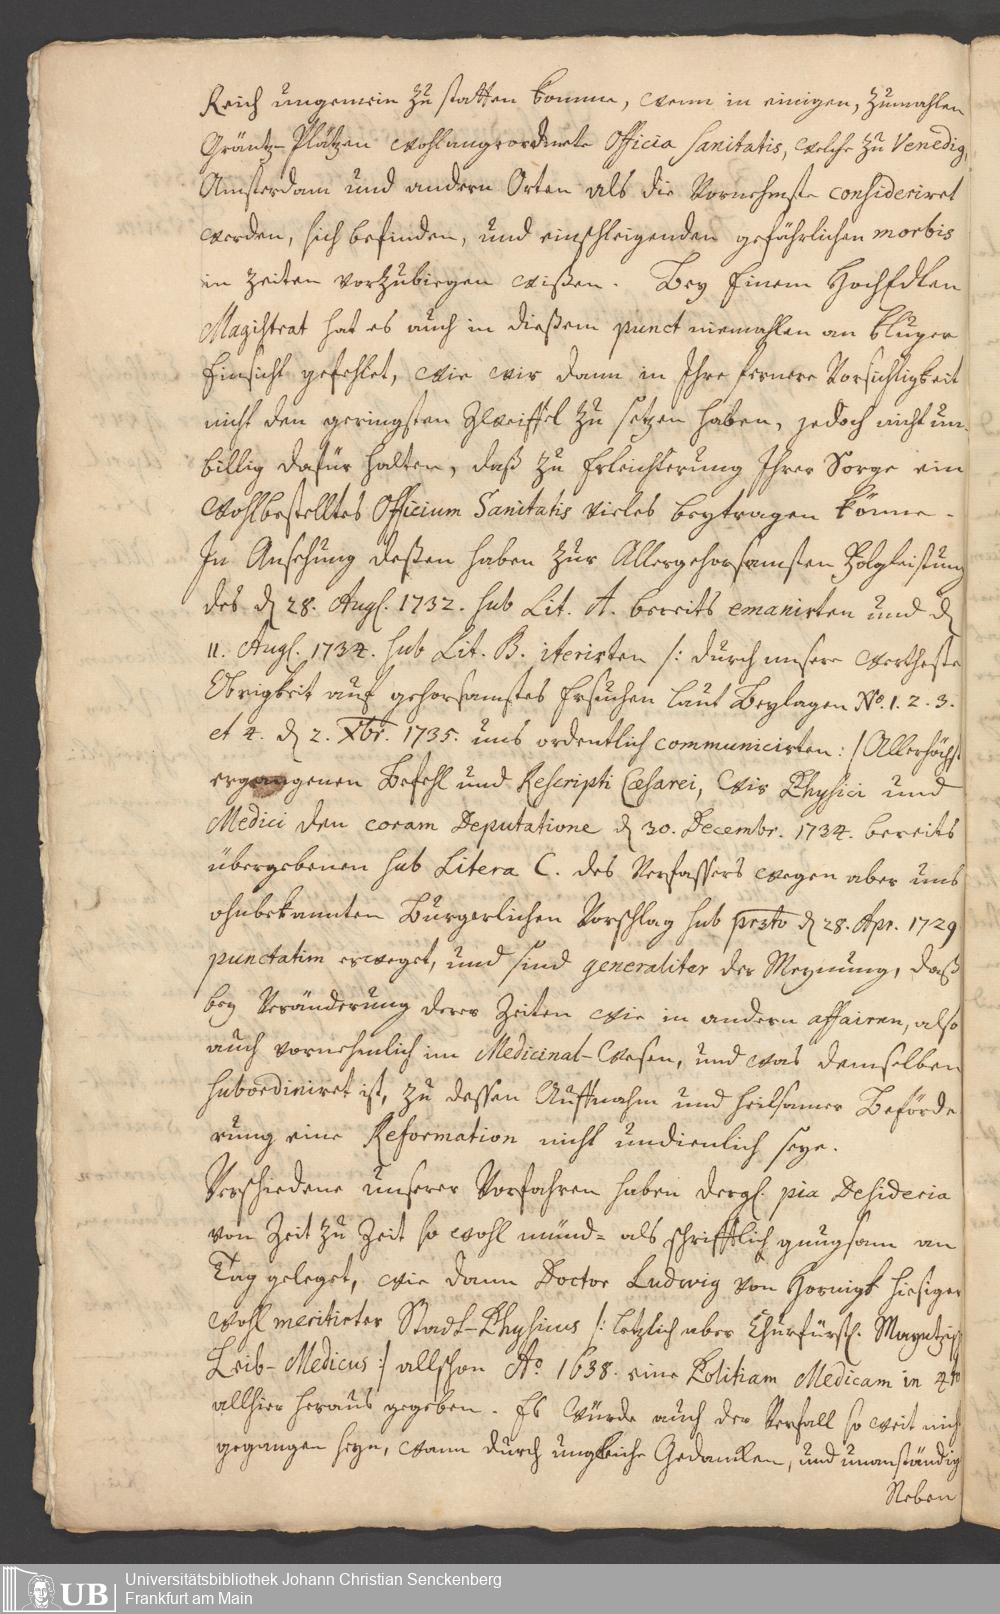 Reich ungemein zu statten komme, wenn in einigen, zumahlen
Gräntz-Plätzen wohlangeordnete Officia Sanitatis, welche zu Venedig,
Amsterdam und andern Orten als die Vornehmste consideriret
werden, sich befinden, und einschleigenden gefährlichen morbis
in Zeiten vorzubiegen wißen. Bey Einem HochEdlen
Magistrat hat es auch in dießem punct niemahlen an kluger
Einsicht gefehlet, wie wir dann in Ihre fernere Vorsichtigkeit
nicht den geringsten Zweiffel zu setzen haben, jedoch nicht un-
billig dafür halten, daß zu Erleichterung Ihrer Sorge ein
Wohlbestelltes Officium Sanitatis vieles beytragen könne.
In Ansehung deßen haben zur Allergehorsamsten Folgleistung
des d. 28. Augs. 1732. sub Lit. A. bereits emanirten und d.
11. Augs. 1734. sub Lit. B. iterirten /: durch unsere Wertheste
Obrigkeit auf gehorsamstes Ersuchen laut Beylagen No. 1. 2. 3.
et 4. d. 2. Xbr. 1735. uns ordentlich communicirten :/ Allerhöchst
ergangenen Befehl und Rescripti Cæsarei, Wir Physici und
Medici den coram Deputatione d. 30. Decembr. 1734. bereits
übergebenen sub Litera C. des Verfassers wegen aber uns
ohnbekannten Burgerlichen Vorschlag sub prsto d. 28. Apr. 1729
punctatim erweget, und sind generaliter der Meynung, daß
bey Veränderung derer Zeiten wie in andern affairen, also
auch vornehmlich im Medicinal-Wesen, und was demselben
subordiniret ist, zu dessen Auffnahm und heilsamer Beförde
rung eine Reformation nicht undienlich seye.
Verschiedene unserer Vorfahren haben dergl. pia Desideria
von Zeit zu Zeit so wohl münd- als schrifftlich gnugsam an
Tag geleget, wie dann Doctor Ludwig von Hornigk hiesiger
wohl meritirter Stadt-Physicus /: letzlich aber Churfürstl. Mayntzisch
Leib-Medicus :/ allschon Ao. 1638. eine Politiam Medicam in 4to
allhier heraus gegeben. Es würde auch der Verfall so weit nich
gegangen seyn, wann durch ungleiche Gedancken, und unanständig
Neben
UB
Universitätsbibliothek Johann Christian Senckenberg
Frankfurt am Main